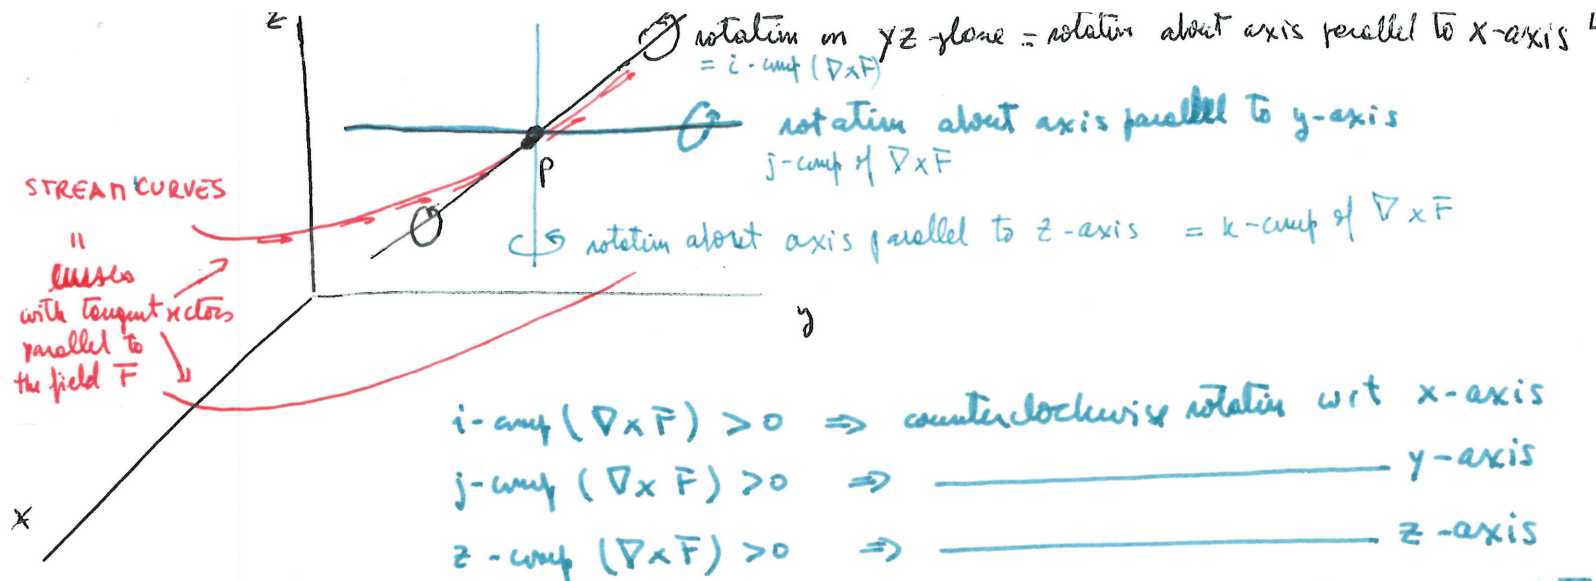 z
rotation in yz-plane = rotation about axis parallel to x-axis
= i-comp (∇×F̄)
rotation about axis parallel to y-axis
j-comp of ∇×F̄
P
STREAM CURVES
=
curves
with tangent vectors
parallel to
the field F̄
rotation about axis parallel to z-axis = k-comp of ∇×F̄
y
x
i-comp (∇×F̄) > 0 ⇒ counterclockwise rotation wrt x-axis
j-comp (∇×F̄) > 0 ⇒ ———— y-axis
z-comp (∇×F̄) > 0 ⇒ ———— z-axis